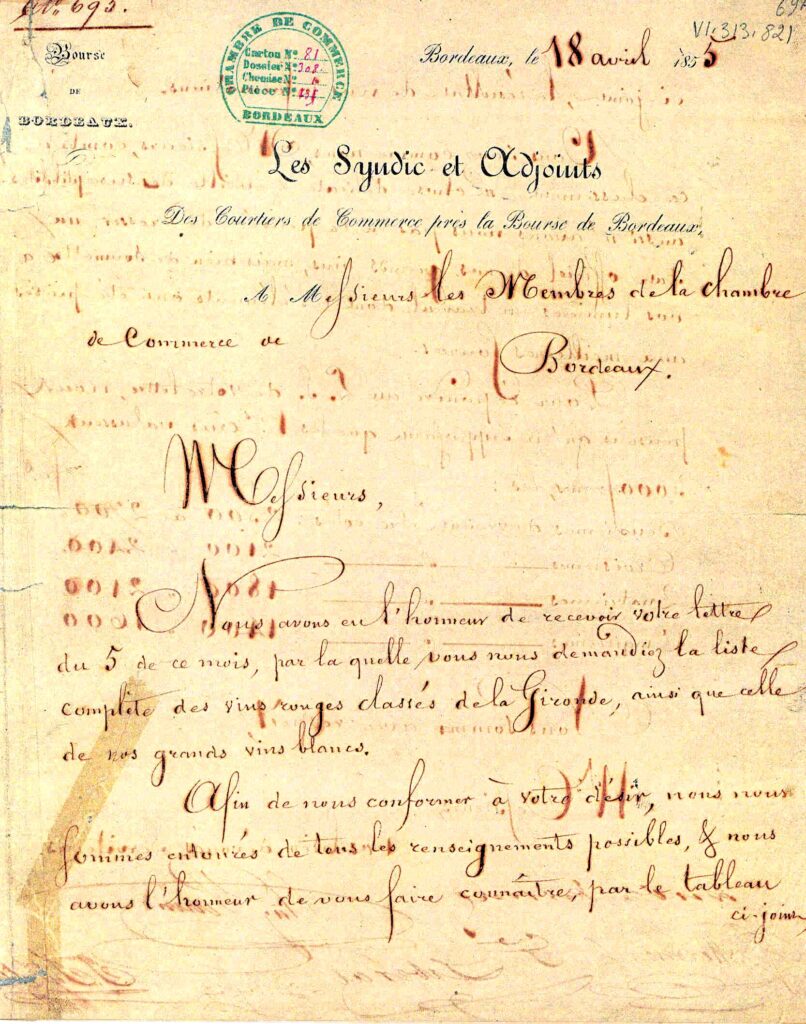 N° 693.
VI.313.821
Bourse
DE
BORDEAUX.
CHAMBRE DE COMMERCE
Carton N° 81
Dossier N°
Chemise N°
Pièce N°
BORDEAUX
Bordeaux, le 18 avril 1855
Les Syndic et Adjoints
Des Courtiers de Commerce près la Bourse de Bordeaux,
A Messieurs les Membres de la chambre
de Commerce de
Bordeaux.
Messieurs,
Nous avons eu l'honneur de recevoir votre lettre
du 5 de ce mois, par la quelle vous nous demandiez la liste
complète des vins rouges classés de la Gironde, ainsi que celle
de nos grands vins blancs.
Afin de nous conformer à votre désir, nous nous
sommes entourés de tous les renseignements possibles, & nous
avons l'honneur de vous faire connaître, par le tableau
ci-joint